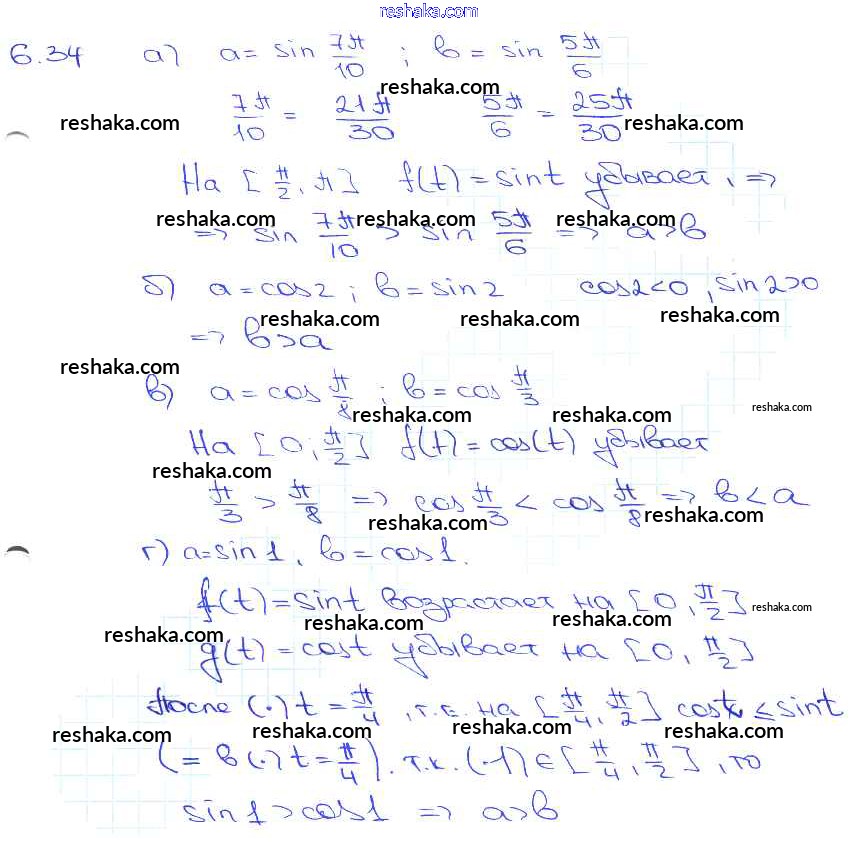 reshaka.com
6.34 а) a = sin 7π/10 ; b = sin 5π/6
reshaka.com
7π/10 = 21π/30 5π/6 = 25π/30
reshaka.com reshaka.com
На [π/2, π] f(t) = sint убывает, =>
reshaka.com reshaka.com reshaka.com
=> sin 7π/10 > sin 5π/6 => a>b
б) a = cos2 ; b = sin2 cos2<0, sin2>0
reshaka.com reshaka.com reshaka.com
=> b>a
reshaka.com
в) a = cos π/8 ; b = cos π/3
reshaka.com reshaka.com reshaka.com
На [0; π/2] f(t) = cos(t) убывает
reshaka.com
π/3 > π/8 => cos π/3 < cos π/8 => b < a
reshaka.com reshaka.com
г) a = sin1, b = cos1.
f(t) = sint возрастает на [0, π/2]
reshaka.com reshaka.com reshaka.com
reshaka.com
g(t) = cost убывает на [0, π/2]
после (·) t = π/4, т.е. на [π/4, π/2] cost ≤ sint
reshaka.com reshaka.com reshaka.com reshaka.com
(= в (·) t = π/4). т.к. (·1) ∈ [π/4, π/2], то
sin1 > cos1 => a>b